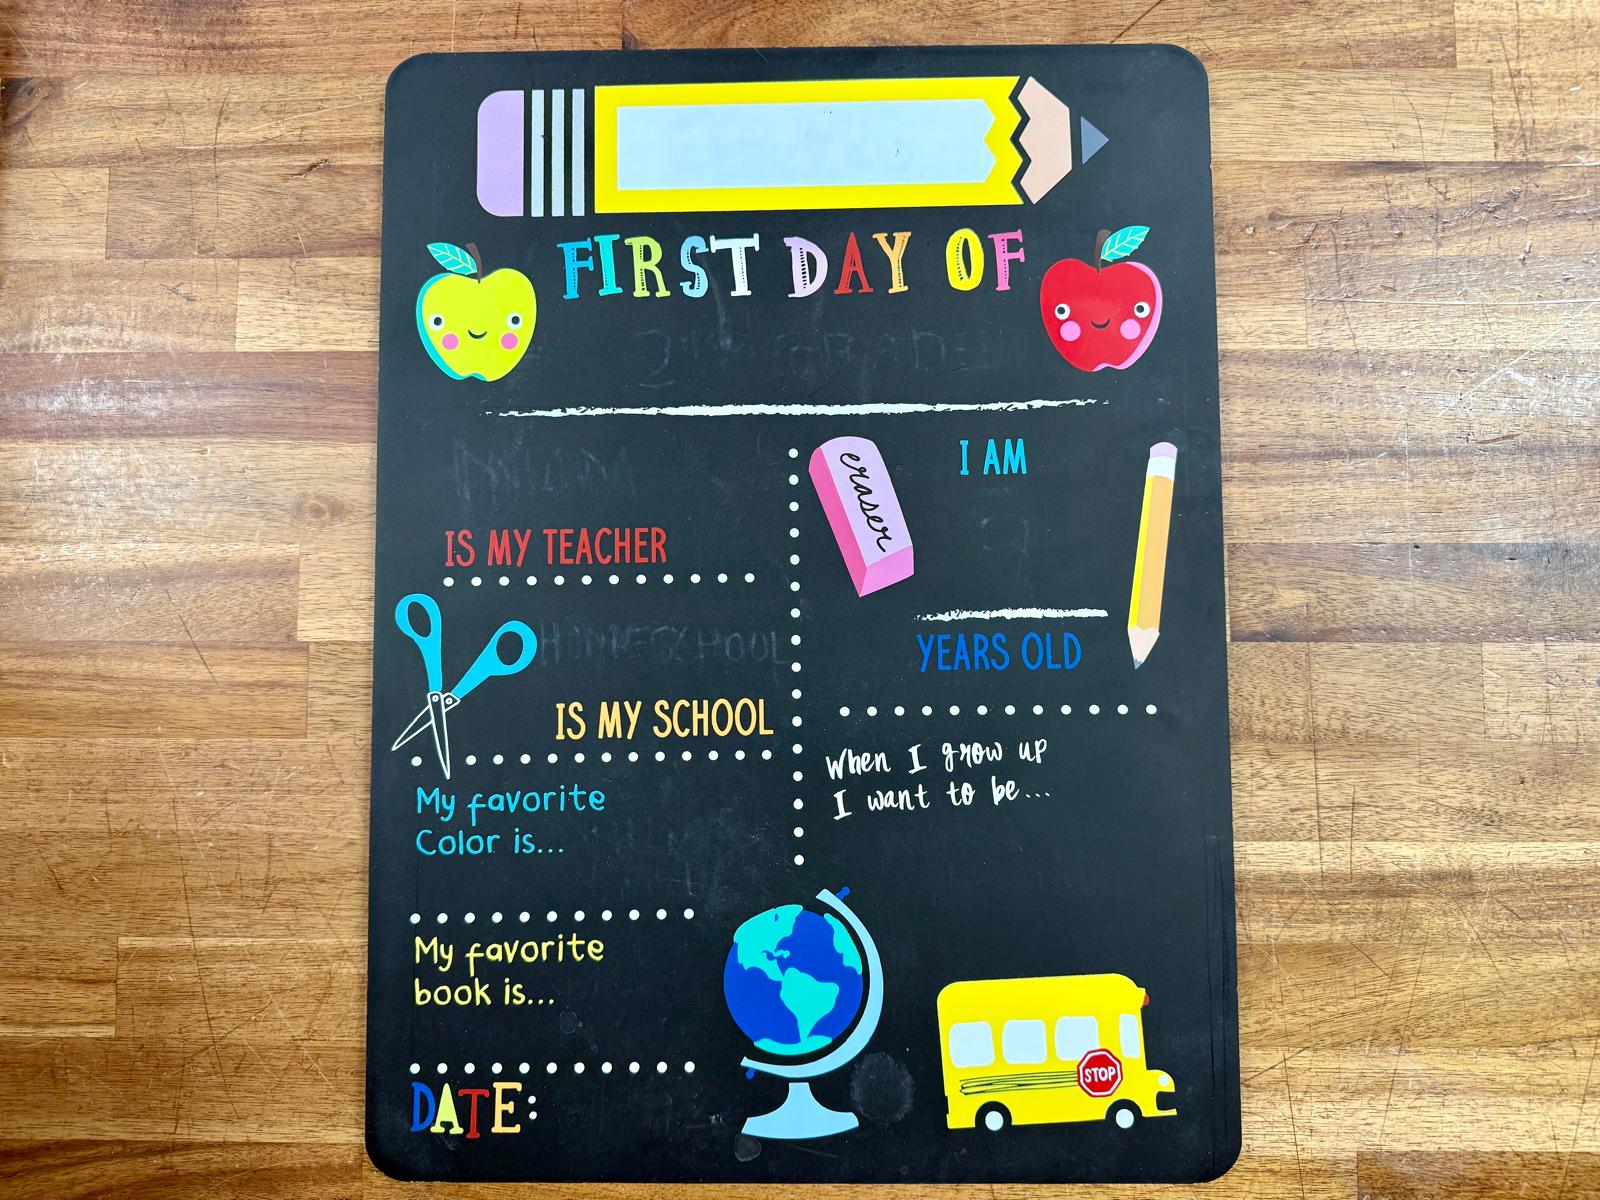 FIRST DAY OF
2nd GRADE
I AM
eraser
7
IS MY TEACHER
HOMESCHOOL
YEARS OLD
IS MY SCHOOL
When I grow up
I want to be...
My favorite
Color is...
My favorite
book is...
STOP
DATE: